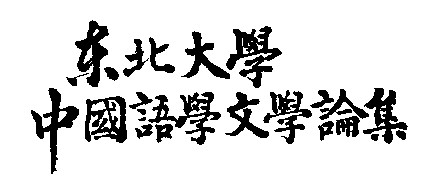 东北大學
中國語學文學論集